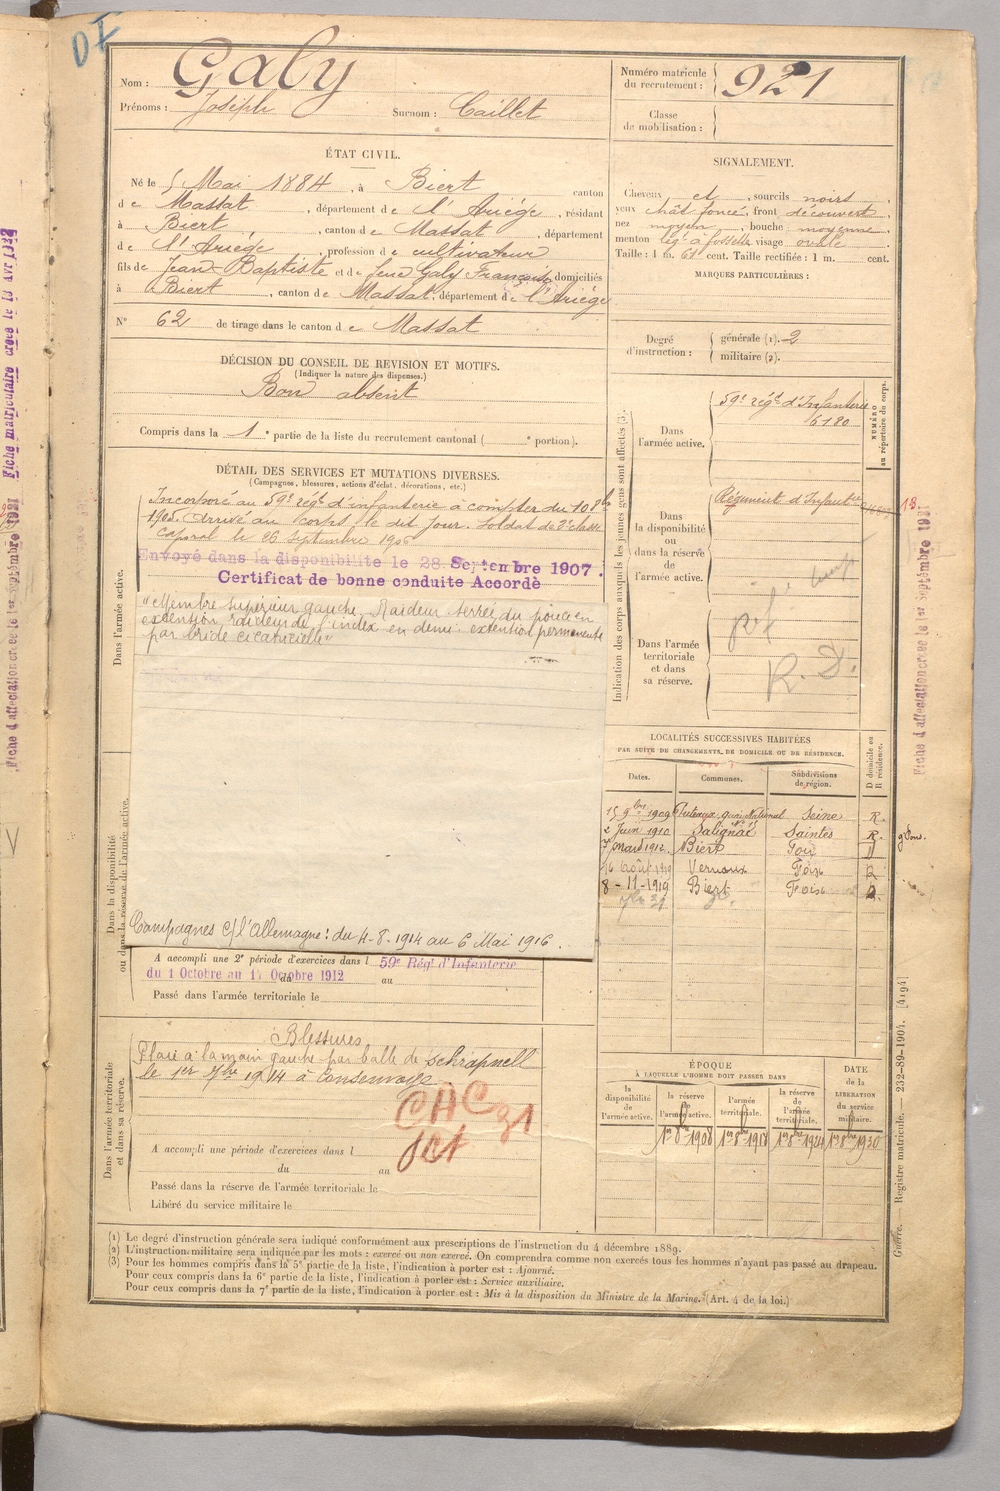 DI
Nom : Galy
Prénoms : Joseph Surnom : Caillet
Numéro matricule du recrutement : 921
Classe de mobilisation :
ÉTAT CIVIL.
Né le 5 Mai 1884, à Biert canton
de Massat, département de l'Ariége, résidant
à Biert, canton de Massat, département
de l'Ariége, profession de cultivateur
fils de Jean-Baptiste et de feue Galy Françoise, domiciliés
à Biert, canton de Massat, département de l'Ariége
N° 62 de tirage dans le canton de Massat
SIGNALEMENT.
Cheveux et, sourcils noirs
yeux chât foncé, front découvert
nez moyen, bouche moyenne
menton lég. à fossette visage ovale
Taille : 1 m. 61 cent. Taille rectifiée : 1 m. cent.
MARQUES PARTICULIÈRES :
Degré d'instruction : générale (1). 2
militaire (2).
DÉCISION DU CONSEIL DE REVISION ET MOTIFS.
(Indiquer la nature des dispenses.)
Bon absent
Compris dans la 1e partie de la liste du recrutement cantonal ( e portion).
DÉTAIL DES SERVICES ET MUTATIONS DIVERSES.
(Campagnes, blessures, actions d'éclat, décorations, etc.)
Dans l'armée active.
Incorporé au 59e régt d'infanterie à compter du 10 8bre
1905. Arrivé au corps le dit jour. Soldat de 2e classe
Caporal le 26 Septembre 1906
Envoyé dans la disponibilité le 28 Septembre 1907.
Certificat de bonne conduite Accordé
"Membre supérieur gauche. Raideur serrée du pouce en
extention raideur de l'index en demi-extention permanente
par bride cicatricielle"
Campagnes c/ l'Allemagne : du 4-8-1914 au 6 Mai 1916.
Dans la disponibilité
ou dans la réserve de l'armée active.
A accompli une 2e période d'exercices dans l 59e Régt d'Infanterie
du 1 Octobre au 17 Octobre 1912 du au
Passé dans l'armée territoriale le
Dans l'armée territoriale
et dans sa réserve.
Blessures
Plaie à la main gauche par balle de schrapnell
le 1er 7bre 1914 à Consenvoye
CAC 31
A accompli une période d'exercices dans l
du au
Passé dans la réserve de l'armée territoriale le
Libéré du service militaire le
Indication des corps auxquels les jeunes gens sont affectés (3).
NUMÉRO au répertoire du corps.
Dans l'armée active.
59e régt d'Infanterie
6180
Dans la disponibilité ou dans la réserve de l'armée active.
Régiment d'Infantie
13.
Dans l'armée territoriale et dans sa réserve.
R. D.
LOCALITÉS SUCCESSIVES HABITÉES
PAR SUITE DE CHANGEMENTS DE DOMICILE OU DE RÉSIDENCE.
Dates. Communes. Subdivisions de région. D domicile ou R résidence.
15 9bre 1909 Puteaux, quai National Seine R.
2 Juin 1910 Salignac Saintes R.
7 mars 1912 Biert Foix D
16 Août 1919 Vernaux Foix R
8-11-1919 Biert Foix R.
ÉPOQUE
À LAQUELLE L'HOMME DOIT PASSER DANS
la disponibilité de l'armée active. la réserve de l'armée active. l'armée territoriale. la réserve de l'armée territoriale. DATE de la LIBÉRATION du service militaire.
1er 8bre 1908 1er 8bre 1918 1er 8bre 1924 1er 8bre 1930
(1) Le degré d'instruction générale sera indiqué conformément aux prescriptions de l'instruction du 4 décembre 1889.
(2) L'instruction militaire sera indiquée par les mots : exercé ou non exercé. On comprendra comme non exercés tous les hommes n'ayant pas passé au drapeau.
(3) Pour les hommes compris dans la 5e partie de la liste, l'indication à porter est : Ajourné.
Pour ceux compris dans la 6e partie de la liste, l'indication à porter est : Service auxiliaire.
Pour ceux compris dans la 7e partie de la liste, l'indication à porter est : Mis à la disposition du Ministre de la Marine. (Art. 4 de la loi.)
Guerre. — Registre matricule. — 232-89-1904. [4194]
Fiche d'affectation créée le 1er Septembre 1931
Fiche d'affectation créée le 1er Septembre 1931
Fiche matriculaire créée le